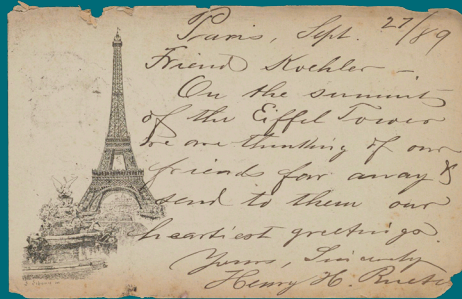 Paris, Sept. 27/89
Friend Koehler –
On the summit
of the Eiffel Tower
we are thinking of our
friends far away &
send to them our
heartiest greetings.
Yours, Sincerely
Henry H.